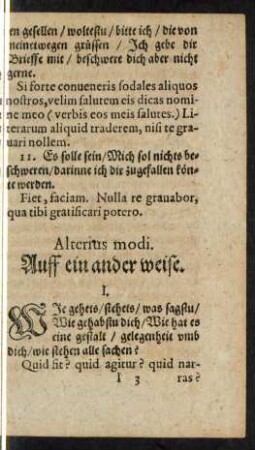 en gesellen / woltestu / bitte ich / die von
meinetwegen grüssen / Ich gebe dir
Brieffe mit / beschwere dich aber nicht
gerne.
Si forte conueneris sodales aliquos
nostros, velim salutem eis dicas nomi-
ne meo ( verbis eos meis salutes.) Li-
terarum aliquid traderem, nisi te gra-
uari nollem.
11. Es solle sein / Mich sol nichts be-
schweren / darinne ich die zugefallen kön-
te werden.
Fiet, faciam. Nulla re grauabor,
qua tibi gratificari potero.
Alterius modi.
Auff ein ander weise.
I.
WIe gehets / stehets / was sagstu /
Wie gehabstu dich / Wie hat es
eine gestalt / gelegenheit vmb
dich / wie stehen alle sachen?
Quid fit? quid agitur? quid nar-
I 3 ras?